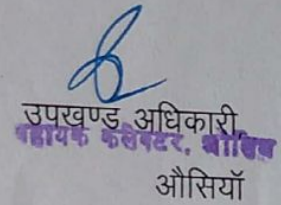 उपखण्ड अधिकारी,
सहायक कलेक्टर, ओसियां
औसियॉ